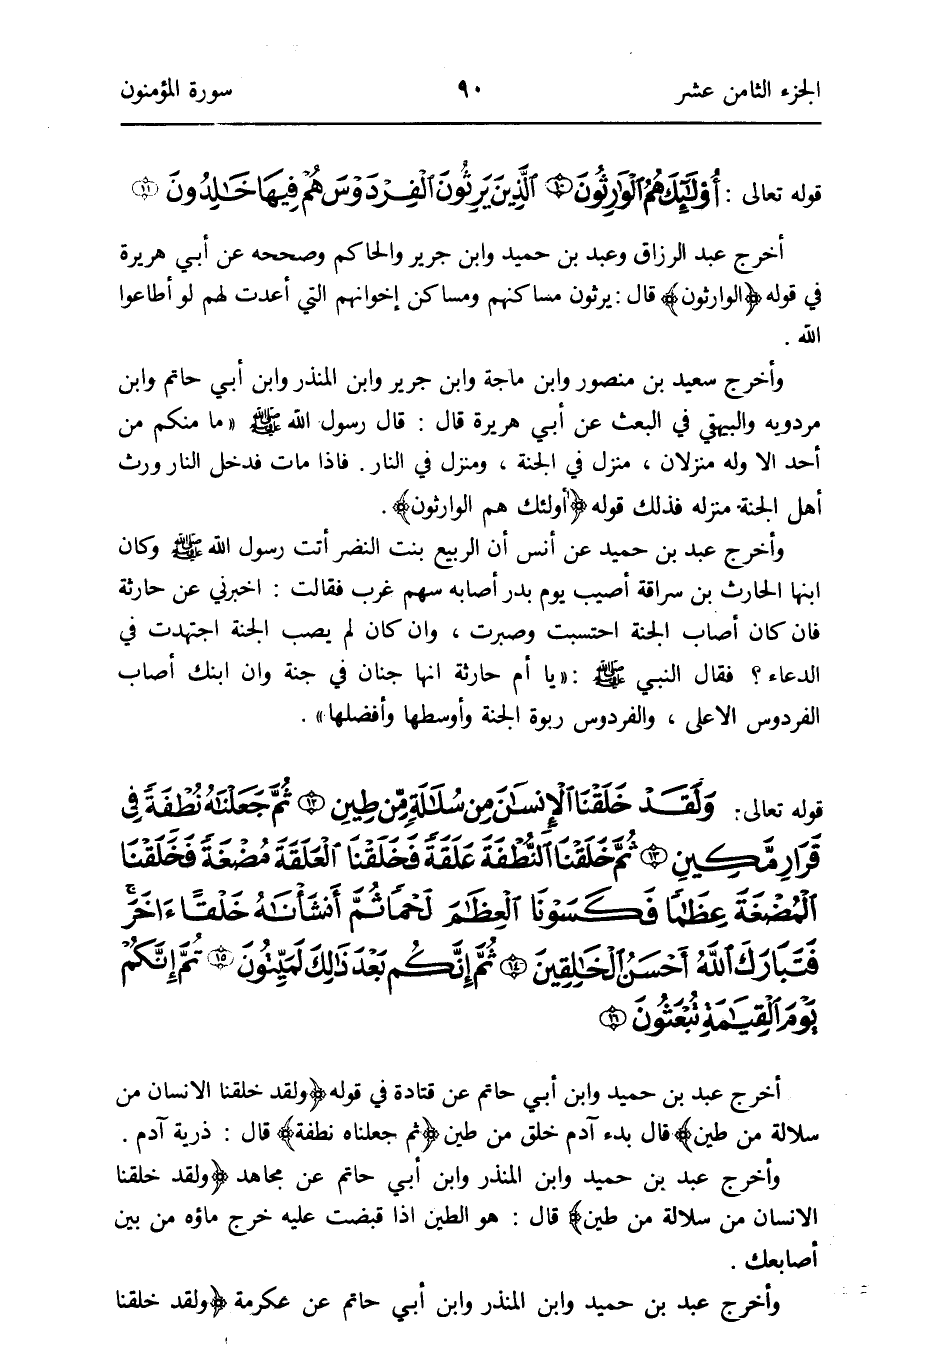 الجزء الثامن عشر ٩٠ سورة المؤمنون
قوله تعالى : أُوْلَٰٓئِكَ هُمُ ٱلْوَٰرِثُونَ ۝١٠ ٱلَّذِينَ يَرِثُونَ ٱلْفِرْدَوْسَ هُمْ فِيهَا خَٰلِدُونَ ۝١١
أخرج عبد الرزاق وعبد بن حميد وابن جرير والحاكم وصححه عن أبي هريرة
في قوله ﴿الوارثون﴾ قال : يرثون مساكنهم ومساكن إخوانهم التي أعدت لهم لو أطاعوا
الله .
وأخرج سعيد بن منصور وابن ماجة وابن جرير وابن المنذر وابن أبي حاتم وابن
مردويه والبيهقي في البعث عن أبي هريرة قال : قال رسول الله ﷺ «ما منكم من
أحد الا وله منزلان ، منزل في الجنة ، ومنزل في النار . فاذا مات فدخل النار ورث
أهل الجنة منزله فذلك قوله ﴿أولئك هم الوارثون﴾ .
وأخرج عبد بن حميد عن أنس أن الربيع بنت النضر أتت رسول الله ﷺ وكان
ابنها الحارث بن سراقة أصيب يوم بدر أصابه سهم غرب فقالت : اخبرني عن حارثة
فان كان أصاب الجنة احتسبت وصبرت ، وان كان لم يصب الجنة اجتهدت في
الدعاء ؟ فقال النبي ﷺ : «يا أم حارثة انها جنان في جنة وان ابنك أصاب
الفردوس الاعلى ، والفردوس ربوة الجنة وأوسطها وأفضلها» .
قوله تعالى : وَلَقَدْ خَلَقْنَا ٱلْإِنسَٰنَ مِن سُلَٰلَةٍ مِّن طِينٍ ۝١٢ ثُمَّ جَعَلْنَٰهُ نُطْفَةً فِى
قَرَارٍ مَّكِينٍ ۝١٣ ثُمَّ خَلَقْنَا ٱلنُّطْفَةَ عَلَقَةً فَخَلَقْنَا ٱلْعَلَقَةَ مُضْغَةً فَخَلَقْنَا
ٱلْمُضْغَةَ عِظَٰمًا فَكَسَوْنَا ٱلْعِظَٰمَ لَحْمًا ثُمَّ أَنشَأْنَٰهُ خَلْقًا ءَاخَرَ ۚ
فَتَبَارَكَ ٱللَّهُ أَحْسَنُ ٱلْخَٰلِقِينَ ۝١٤ ثُمَّ إِنَّكُم بَعْدَ ذَٰلِكَ لَمَيِّتُونَ ۝١٥ ثُمَّ إِنَّكُمْ
يَوْمَ ٱلْقِيَٰمَةِ تُبْعَثُونَ ۝١٦
أخرج عبد بن حميد وابن أبي حاتم عن قتادة في قوله ﴿ولقد خلقنا الانسان من
سلالة من طين﴾ قال بدء آدم خلق من طين ﴿ثم جعلناه نطفة﴾ قال : ذرية آدم .
وأخرج عبد بن حميد وابن المنذر وابن أبي حاتم عن مجاهد ﴿ولقد خلقنا
الانسان من سلالة من طين﴾ قال : هو الطين اذا قبضت عليه خرج ماؤه من بين
أصابعك .
وأخرج عبد بن حميد وابن المنذر وابن أبي حاتم عن عكرمة ﴿ولقد خلقنا